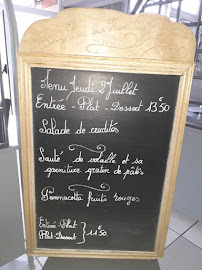 Menu Jeudi 2 Juillet
Entrée - Plat - Dessert 13€50
Salade de crudités
Sauté de volaille et sa
garniture gratin de pâtes
Pannacotta fruits rouges
Entrée Plat
Plat Dessert } 11€50